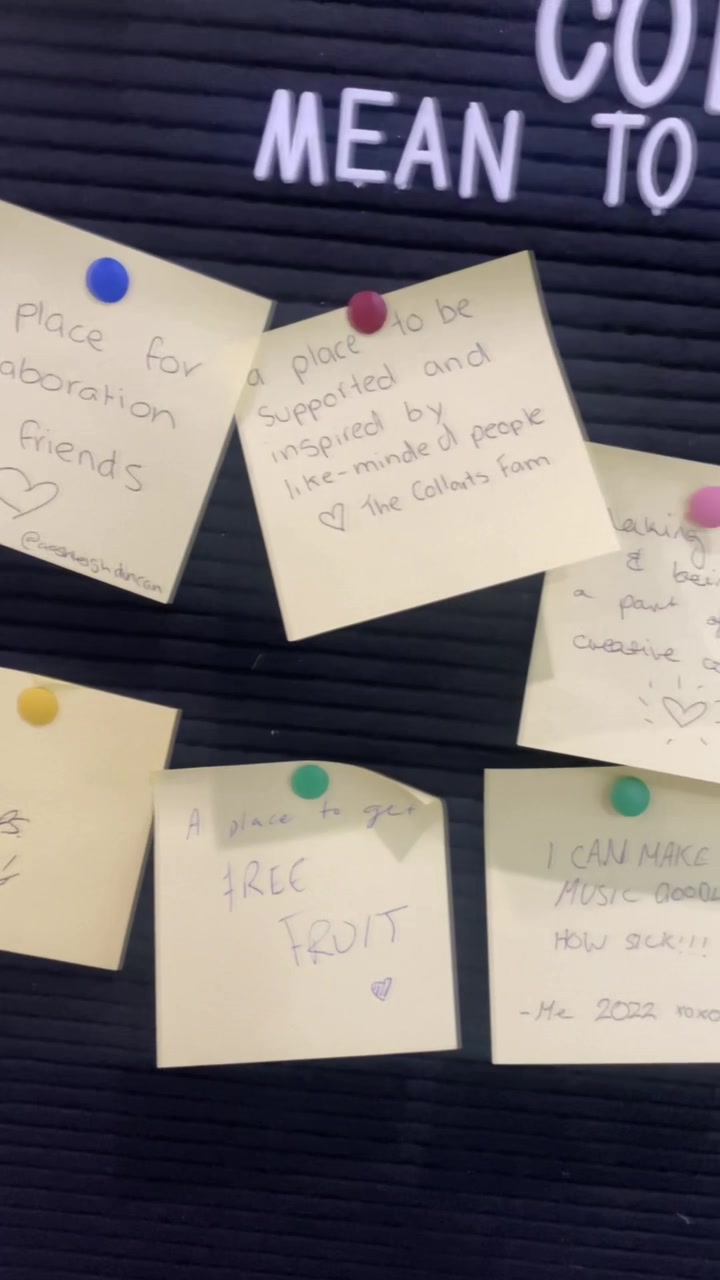 CO
MEAN TO
place for
aboration
friends
a place to be
supported and
inspired by
like-minded people
♡ The Collarts Fam
aking
& bei
a part
creative
A place to get
FREE
FRUIT
I CAN MAKE
MUSIC GOOD
HOW SICK!!!
-Me 2022 xoxo